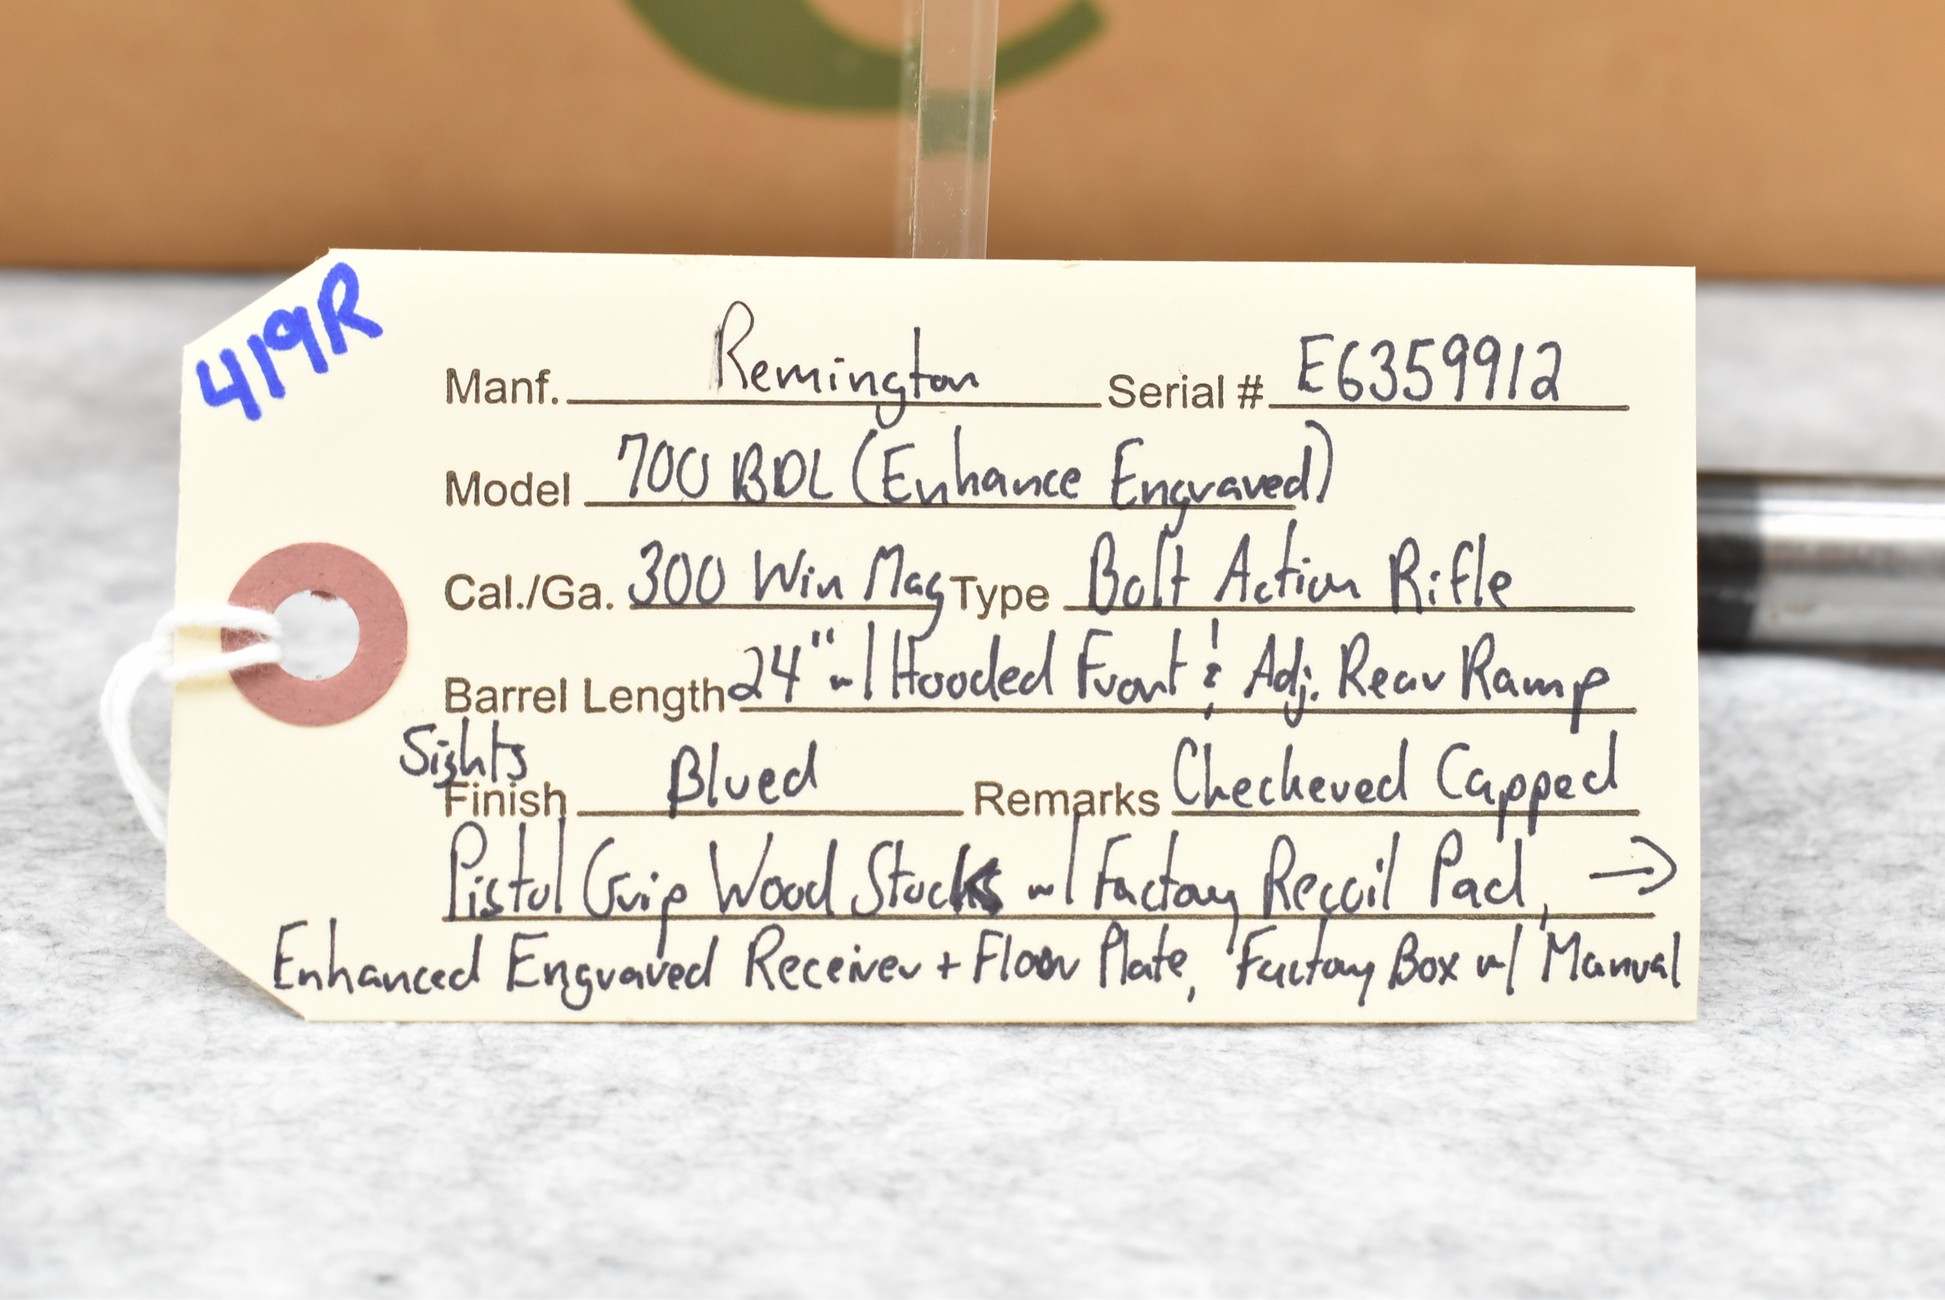 419R
Manf. Remington Serial # E6359912
Model 700 BDL (Enhance Engraved)
Cal./Ga. 300 Win Mag Type Bolt Action Rifle
Barrel Length 24" w/ Hooded Front & Adj. Rear Ramp
Sights
Finish Blued Remarks Checkered Capped
Pistol Grip Wood Stocks w/ Factory Recoil Pad, →
Enhanced Engraved Receiver + Floor Plate, Factory Box w/ Manual